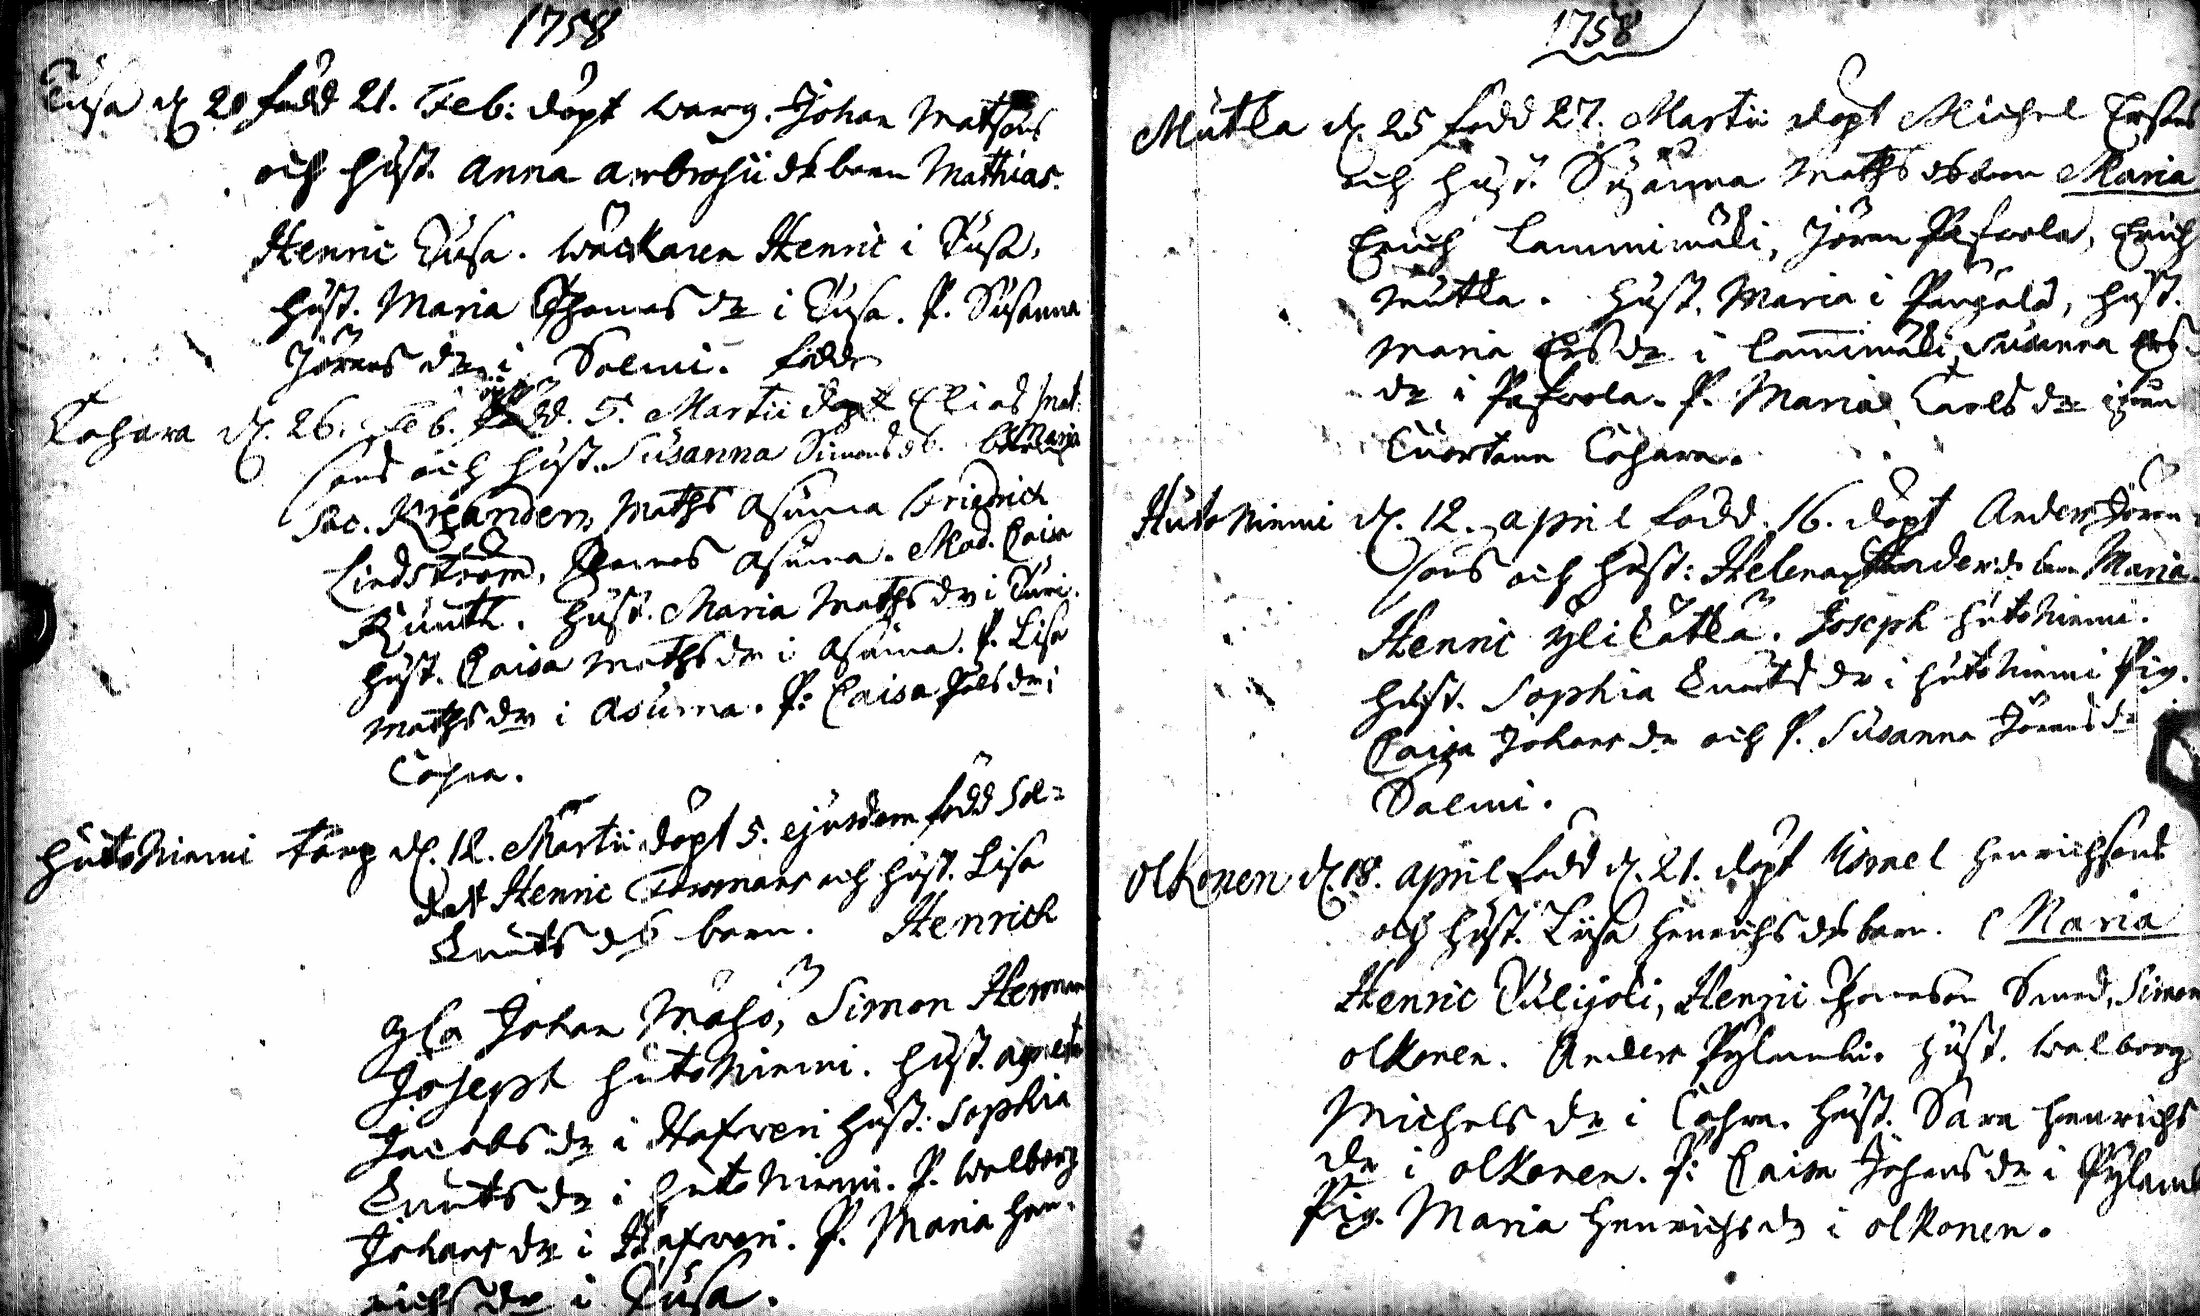 1758
Tusa d. 20 född 21. Feb: döpt warg. Johan Matsons
och hust. Anna Ambrosii dr barn Mathias.
Henric Tusa. Wäckaren Henric i Tusa,
hust. Maria Thomas dr i Tusa. P. Susanna
Jörens dr i Salmi. född
Cahara d. 26. Feb. 5. Martii döpt Elias Mat-
sons och hust. Susanna Simons db. barn Maria
Sac. Kreander, Maths Asuma Friedrich
Lindström, Thomas Asuma. Mad. Caisa
hust. Maria Maths dr i Turi.
hust. Caisa Maths dr i Asuma. P. Lisa
Maths dr i Asuma. P: Caisa Påls dr i
Cahra.
Hutoniemi torp d. 12. Martii döpt 5. ejusdem född Sol-
dat Henric Formans och hust. Lisa
Knuts db barn. Henrich
gla Johan Måsö, Simon Herman
Joseph Hutoniemi. hust. Agneta
Jacobs dr i Hafveri hust: Sophia
Knuts dr i Hutoniemi. P. Walborg
Johans dr i Hafveri. P. Maria Hen-
richs dr i Tusa.
1758
Mutka d. 25 född 27. Martii döpt Michel Ersons
och hust. Susanna Maths db barn Maria
Erich Lammimäki, Jören Pafvola, Erich
Mutka. hust. Maria i Pangala, hust.
Maria Ers dr i Lammimäki Susanna Ers-
dr i Pafvola. P. Maria Carls dr i
Cuortane Cahara.
Hutoniemi d. 12. april född. 16. döpt Anders Jören-
sons och hust: Helena Anders dr barn Maria.
Henric Ylikätkä. Joseph Hutoniemi.
hust. Sophia Knuts dr i Hutoniemi Pig.
Caisa Johans dr och P. Susanna Jörens dr i
Salmi.
Olkonen d. 18. april född d. 21. döpt Israel Henrichsons
och hust. Lisa Henrichs dr barn. Maria
Henric Tulijoki, Henric Thomason Smed, Simon
Olkonen. Anders Pylämäki. hust. Walborg
Michels dr i Cahra. hust. Sara Henrichs
dr i Olkonen. P: Caisa Johans dr i Pyläm
Pig. Maria Henrichs dr i Olkonen.